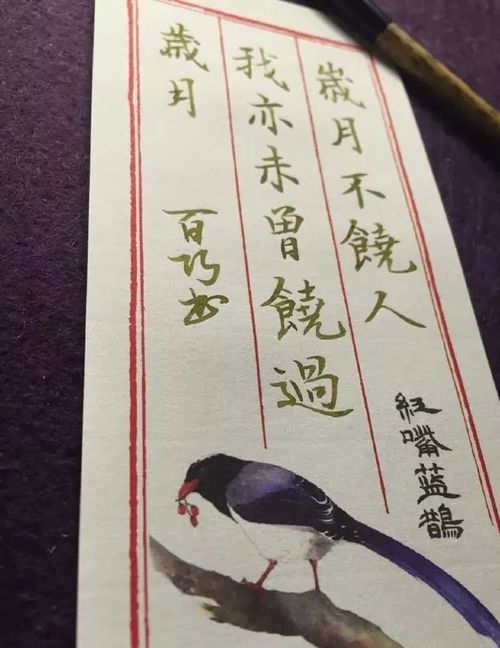 歲月不饒人
我亦未曾饒過
歲月
百巧书
紅嘴藍鵲